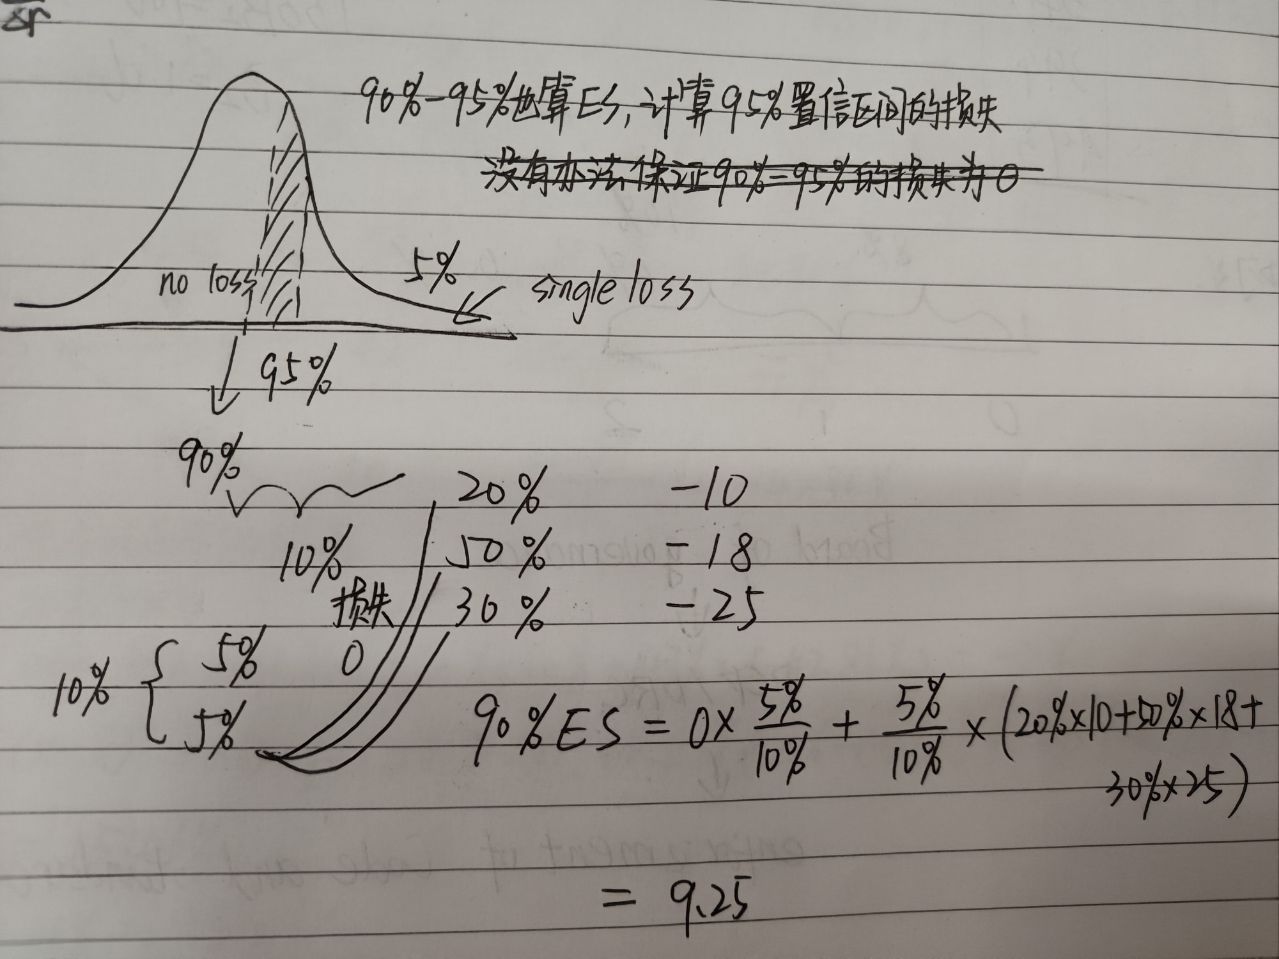 Δr
90%-95%也算ES,计算95%置信区间的损失
没有办法保证90%-95%的损失为0
5%
no loss
single loss
95%
90%
20% -10
10% 50% -18
损失 30% -25
10% { 5% 0
5%
90%ES = 0× 5%/10% + 5%/10% ×(20%×10+50%×18+
30%×25)
= 9.25